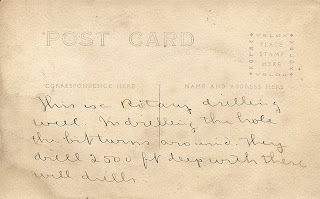 POST CARD
AZO
PLACE
STAMP
HERE
AZO
CORRESPONDENCE HERE
NAME AND ADDRESS HERE
This is a Rotary drilling
well. In drilling the hole
the bit turns around. They
drill 2500 ft deep with these
well drills